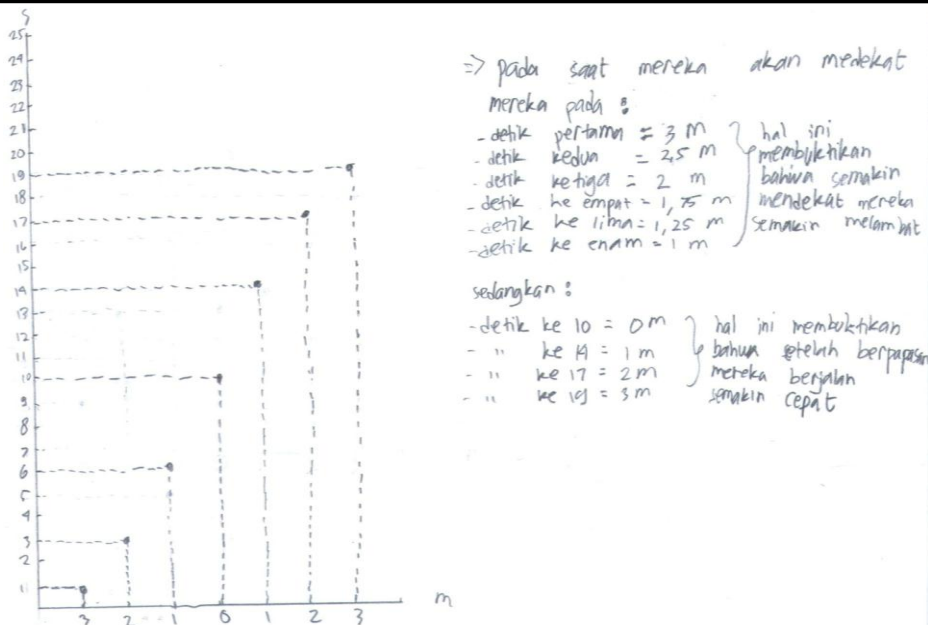 S
25
24
23
22
21
20
19
18
17
16
15
14
13
12
11
10
9
8
7
6
5
4
3
2
1
3 2 1 0 1 2 3
m
=> pada saat mereka akan medekat
mereka pada :
- detik pertama = 3 m
- detik kedua = 2,5 m
- detik ketiga = 2 m
- detik ke empat = 1,75 m
- detik ke lima = 1,25 m
- detik ke enam = 1 m
hal ini
membuktikan
bahwa semakin
mendekat mereka
semakin melambat
sedangkan :
- detik ke 10 = 0 m
- " ke 14 = 1 m
- " ke 17 = 2 m
- " ke 19 = 3 m
hal ini membuktikan
bahwa setelah berpapasan
mereka berjalan
semakin cepat